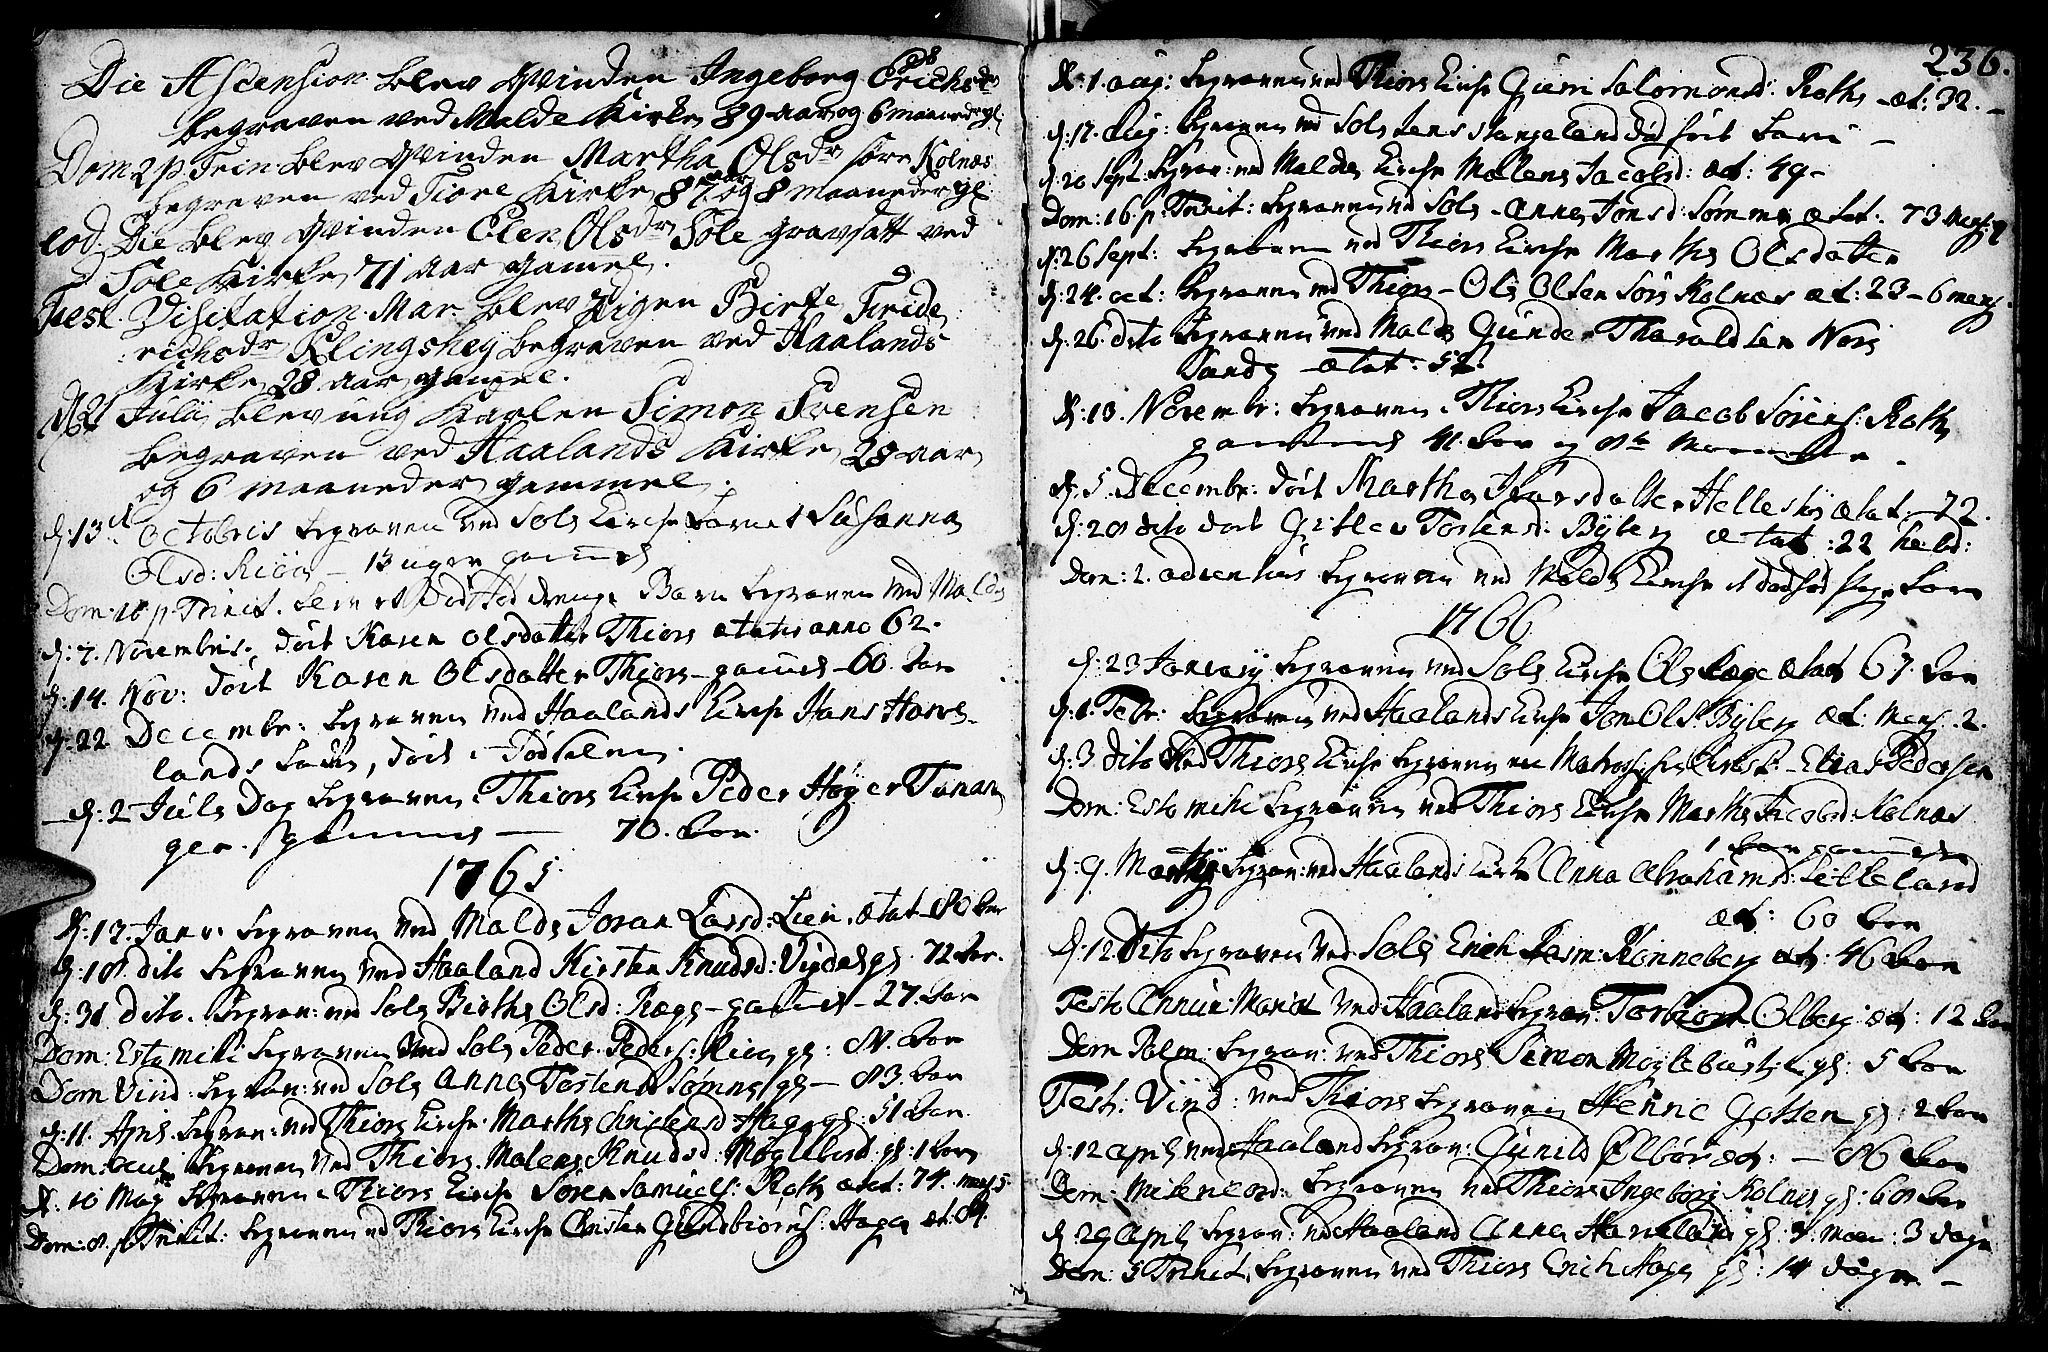 Die Ascension blev Qvinden Ingeborg Erichsdr
begraven ved Malde Kirke 89 aar og 6 maaneder gl
Dom 2 p Trin blev Qvinden Martha Olsdr söre Kolnæs
begraven ved Tiore Kirke 87 aar og 8 maaneder gl:
eod. Die blev Qvinden Elen Olsdr Sole gravsatt ved
Sole Kirke 71 aar gamel.
Fest. Visitation. Mar. blev Pigen Birte Fride
richsdr Klingshey begraven ved Haalands
Kirke 28 aar gamel.
d 21 Julii blev ung Karlen Simon Svensen
begraven ved Haalands Kirke 28 aar
og 6 maaneder gammel.
d: 13 Octobris begraven ved Sole Kirche barnet Susanna
Olsd: Risa — 13 uger gammel
Dom: 16 p Trinit. blev et dödfød drenge Barn begraven ved Malde
d: 7. Novembris. död Karen Olsdatter Thiore ætatis anno 62.
d: 14. Nov: död Karen Olsdatter Thiore – gammel – 60. Aar
d: 22 Decembr: begraven ved Haalands Kirche Hans Haave
lands barn, död i Fødselen.
d: 2 Jule Dag begraven i Thiore Kirche Peder Høyer Tanan
ger. gammel — 70. Aar.
1765.
d: 17. Janv: begraven ved Malde Joran Larsd: Lien. ætat 80 Aar
d: 18. dito begraven ved Haaland Kirsten Knudsd: Vigdel gl. 72 Aar.
d: 31 dito. Begrav: ved Sole Birthe Olsd: Rege – gammel – 27. Aar
Dom: Estomihi begraven ved Sole Peder Peders: Risa gl: 81. Aar
Dom Vind: begrav: ved Sole Anna Tostensd Sømme gl – 83. Aar
d: 11. April begrav: ved Thiore Kirche Martha Christensd Haga gl: 51 Aar.
Dom: begraven ved Thiore Malene Knudsd: Møglebust gl: 1 Aar
d: 10 May begraven i Thiore Kirche Søren Samuels: Roth æt: 74. mens 5
Dom: 8. p Trinit: begraven ved Thiore Kirche Christen Gundbiørns: Haga æt: 84.
236.
d: 1. aug: begraven ved Thiore Kirche Guri Salomonsd: Roth æt: 32. –
d: 17. Aug: begraven ved Sole Jens Stangeland död föd barn –
d: 20 Sept: begrav: ved Malde Kirche Malene Jacobsd: æt: 49 –
Dom: 16 p: Trinit: begraven ved Sole – Anna Jonsd: Sømme ætat: 73 Mens:
d: 26 Sept: begraven ved Thiore Kirche Martha Olsdatter
d: 24. oct: begraven ved Thiore – Ole Olsen Söre Kolnæs æt: 23 – 6 mens.
d: 26. dito begraven ved Malde Gunder Tharaldsen Nore
Sunde ætat: 52.
d: 13. Novembr: begraven i Thiore Kirche Jacob Sörens: Roth
gammel 41. Aar og 8te Maaneder.
d: 5. Decembr: död Martha Ifvarsdatter Hellestø ætat. 72.
d: 20 dito död Gitlev Tostensd: Byberg ætat: 22 hebd:
Dom: 2. adventus begraven ved Malde Kirche et dødfød pige barn
1766
d: 23 Januarij begraven ved Sole Kirche Ole Rege ætat 67. Aar
d: 1. Febr: begraven ved Haalands Kirche Jon Ols: Byberg æt: mens. 2.
d: 3 dito ved Thiore Kirche begraven en Matros: Elias Pedersen
Dom: Estomihi begraven ved Thiore Kirche Martha Jacobsd: Kolnæs
1 Aar gammel
d: 9. Martij begrav: ved Haalands Kirke Anna Abrahamsd: Litleland
æt: 60 Aar
d: 12 dito begraven ved Sole Erich Rasm: Rønneberg æt: 46 Aar
Festo Annun: Mariæ ved Haaland begrav: Torbiør Olberg æt: 12 Aar
Dom Palm: begrav: ved Thiore Simon Møglebust gl: 5 Aar
Fest: Viind: ved Thiore begraven Henric Gotten gl: 2 Aar
d: 12 april ved Haaland begrav: Gunild Ølbør æt: – 86 Aar
Dom: Misericord: begraven ved Thiore Ingeborg Kolnes gl: 68 Aar
d 29 april begrav: ved Haaland Anna Haaveland gl: 7. Maan: 3 dage
Dom: 5 Trinit. begraven ved Thiore Erich Haga gl: 14 dage –